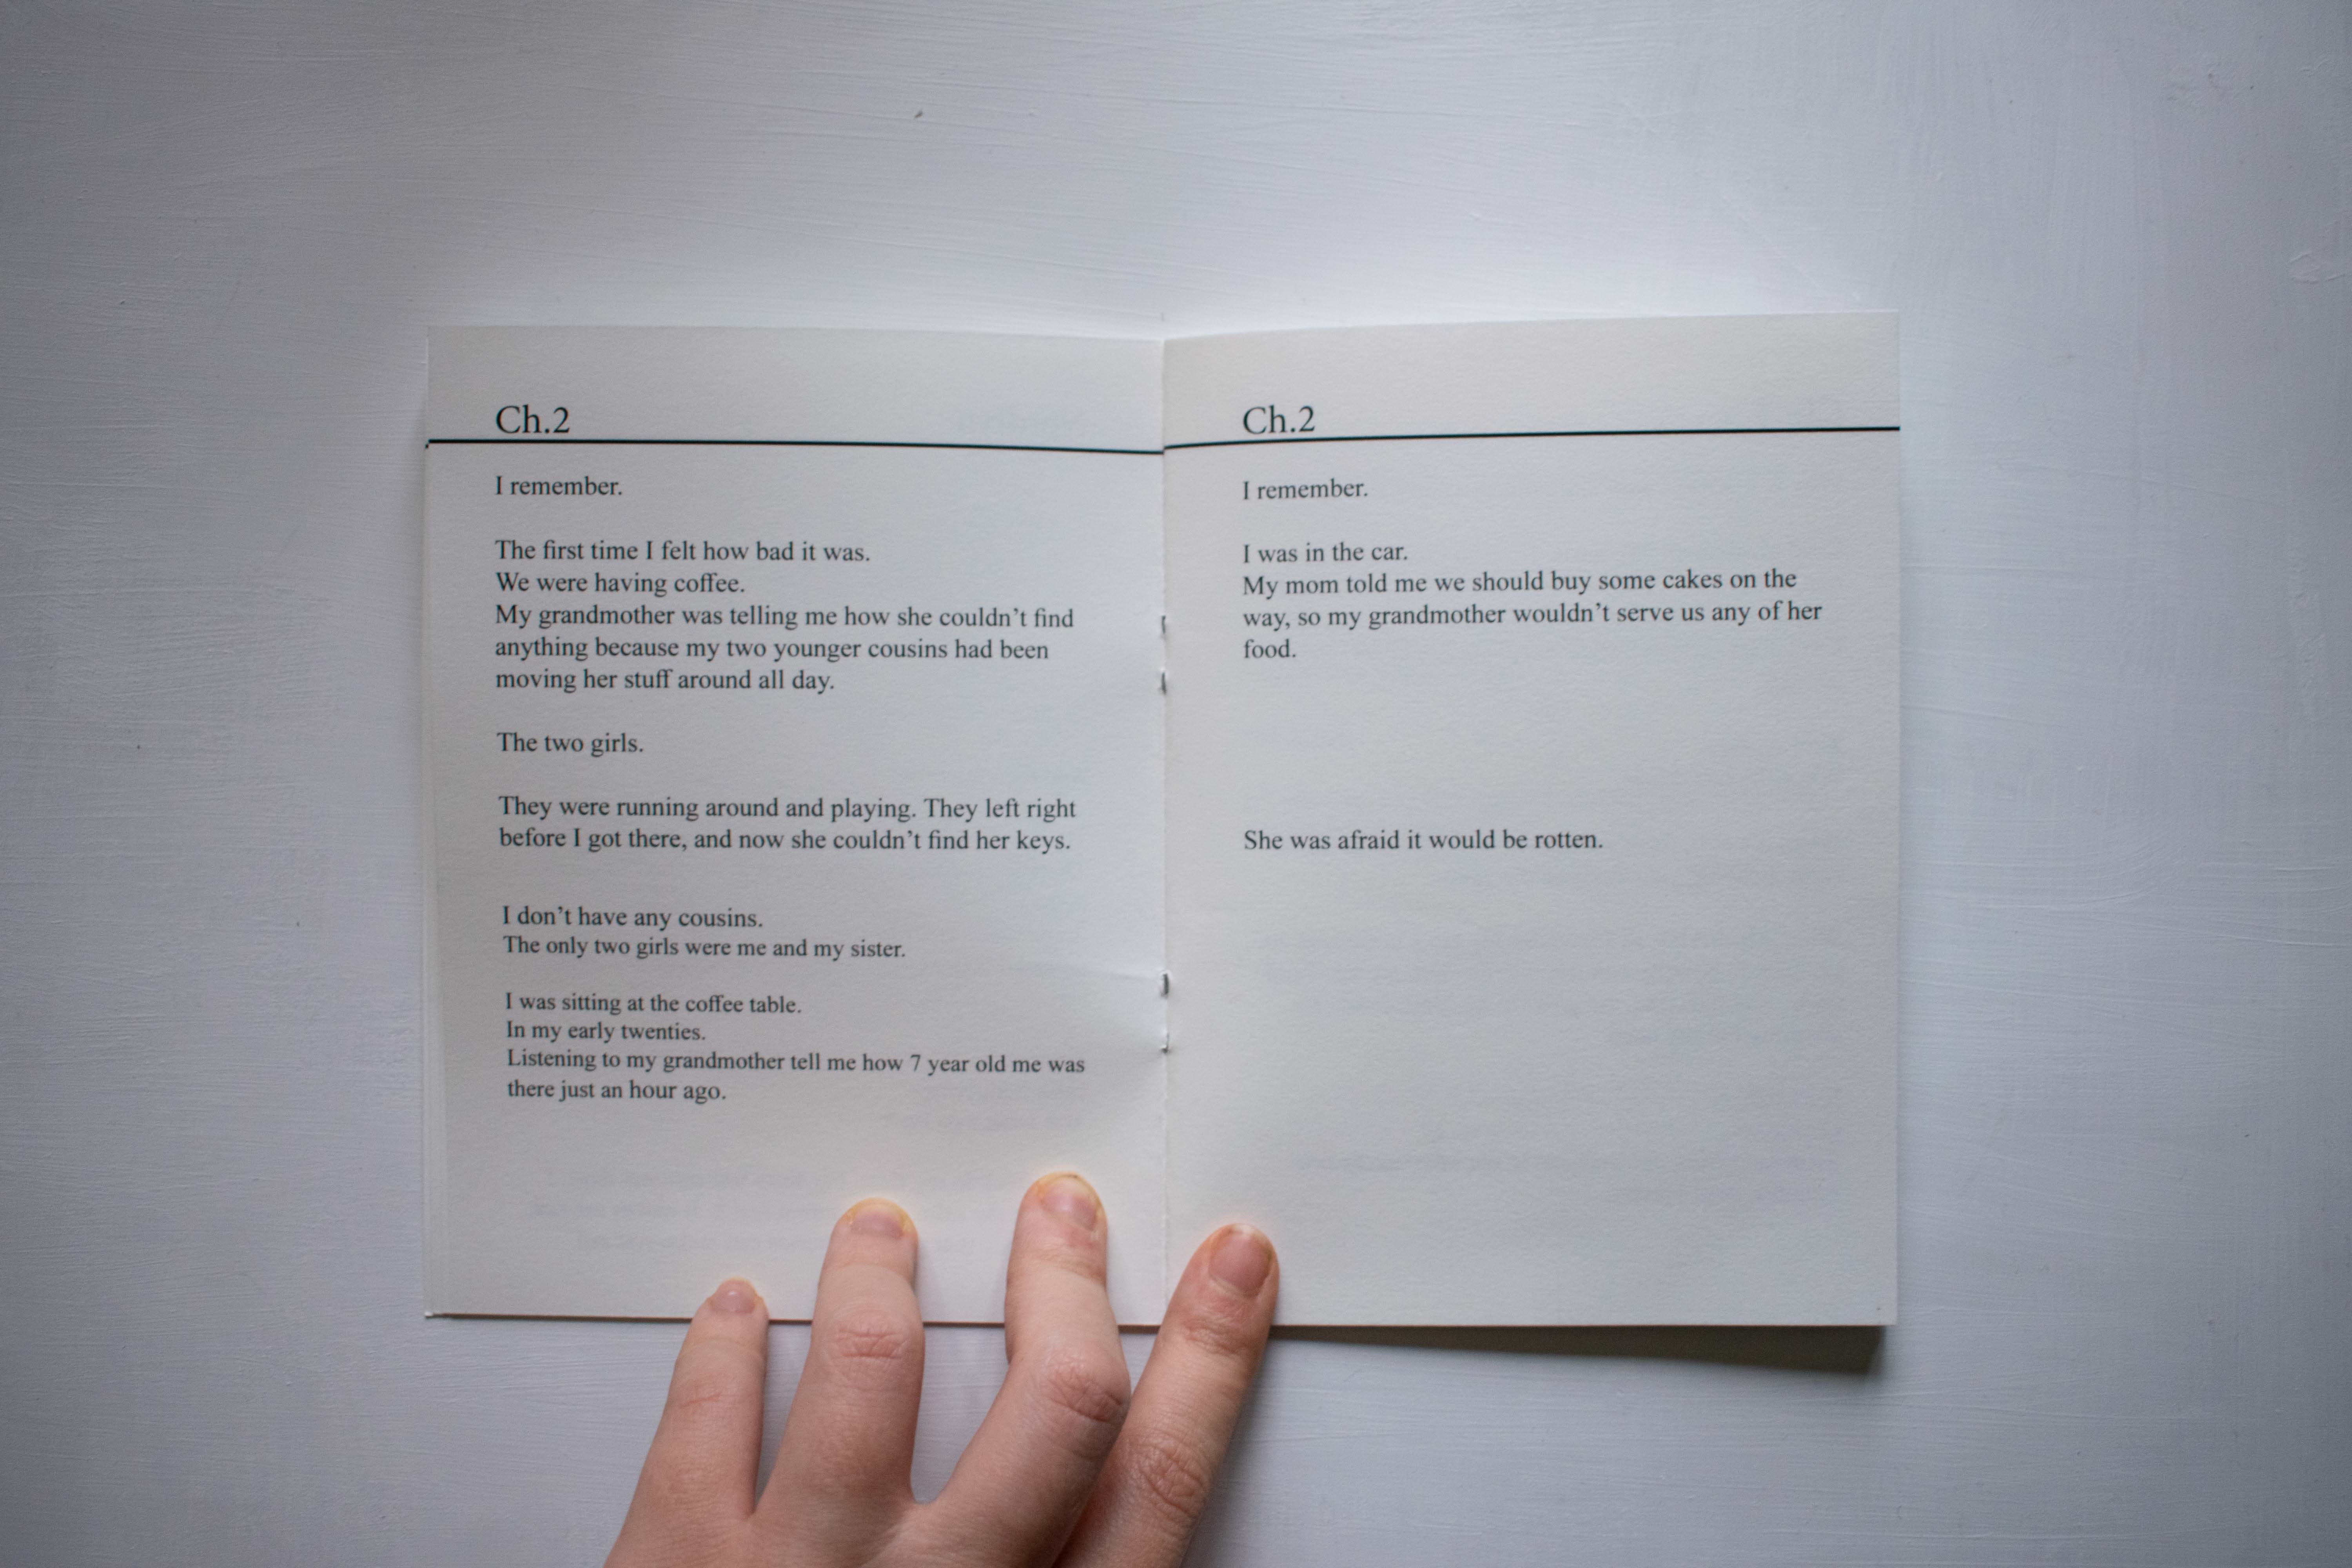 Ch.2
I remember.
The first time I felt how bad it was.
We were having coffee.
My grandmother was telling me how she couldn’t find
anything because my two younger cousins had been
moving her stuff around all day.
The two girls.
They were running around and playing. They left right
before I got there, and now she couldn’t find her keys.
I don’t have any cousins.
The only two girls were me and my sister.
I was sitting at the coffee table.
In my early twenties.
Listening to my grandmother tell me how 7 year old me was
there just an hour ago.
Ch.2
I remember.
I was in the car.
My mom told me we should buy some cakes on the
way, so my grandmother wouldn’t serve us any of her
food.
She was afraid it would be rotten.